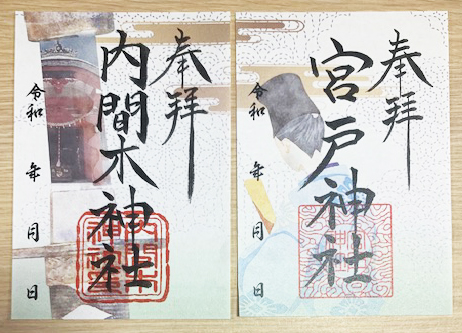 奉拝
内間木神社
令和 年 月 日
奉拝
宮戸神社
令和 年 月 日